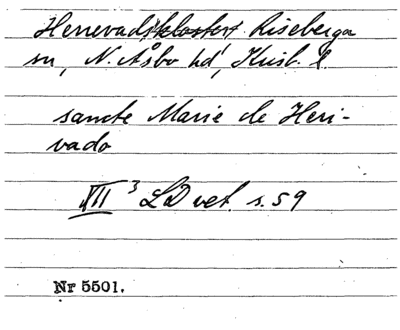 Herrevadskloster, Riseberga
sn, N. Åsbo hd, Krist. l.
sancte Marie de Heri-
vado
VII³ LD vet. s. 59
Nr 5501.